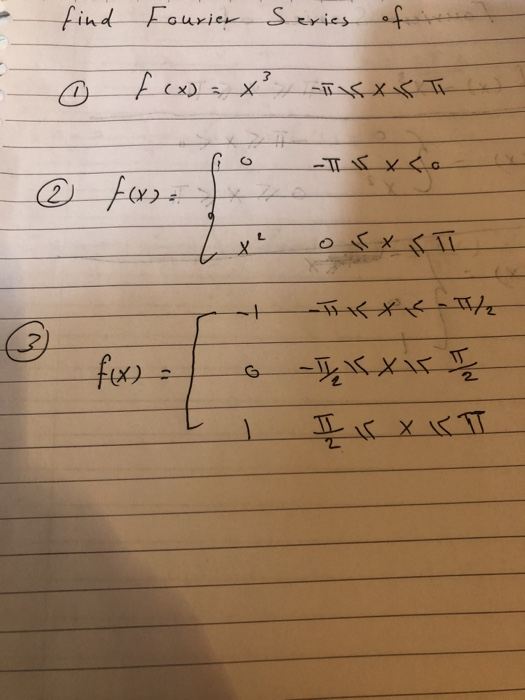 find Fourier Series of
① f(x) = x³ -π ≤ x ≤ π
② f(x) = { 0 -π ≤ x < 0
x² 0 ≤ x ≤ π
③ f(x) = [ -1 -π ≤ x ≤ -π/2
0 -π/2 ≤ x ≤ π/2
1 π/2 ≤ x ≤ π